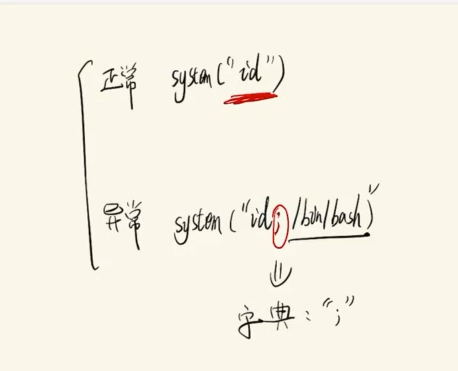 正常 system("id")
异常 system("id;/bin/bash")
字典:";"